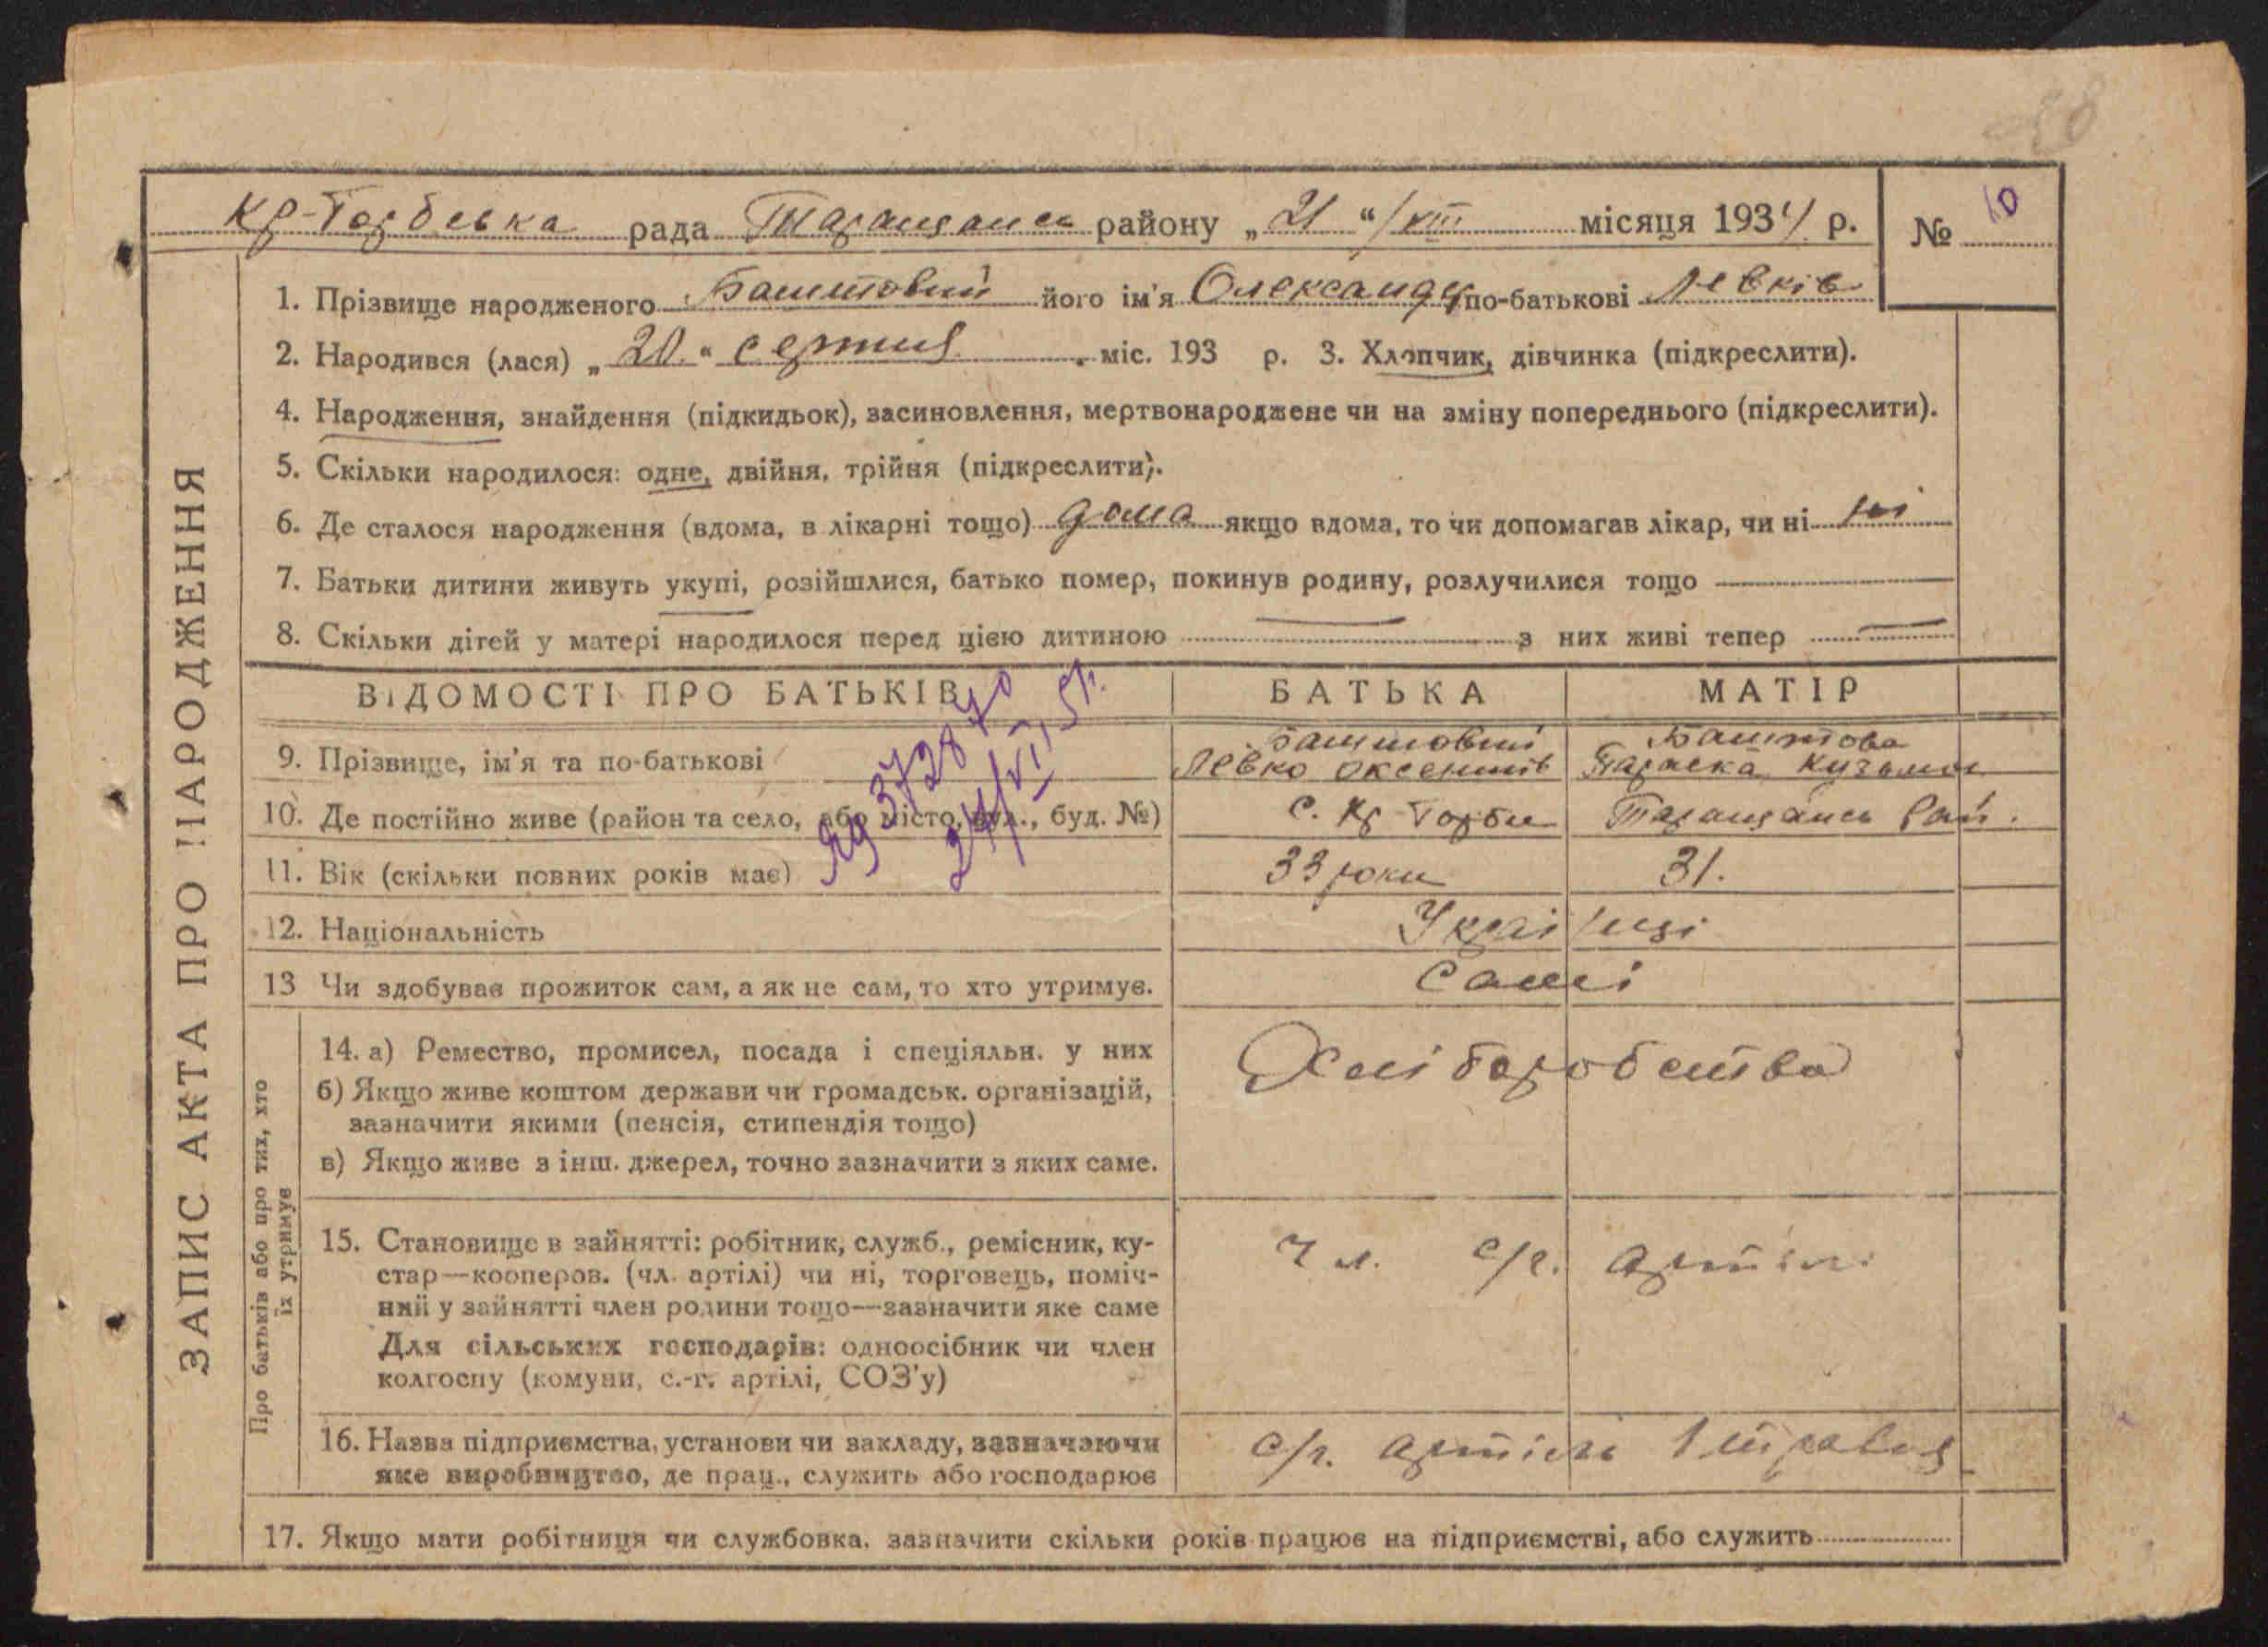 Кр-Торбевка рада Таращанск району „21“/VIII місяця 1934 р. № 10
1. Прізвище народженого Баштовий його ім'я Олександр по-батькові Левків
2. Народився (лася) „20“ серпня міс. 193 р. 3. Хлопчик, дівчинка (підкреслити).
4. Народження, знайдення (підкидьок), засиновлення, мертвонароджене чи на зміну попереднього (підкреслити).
5. Скільки народилося: одне, двійня, трійня (підкреслити).
6. Де сталося народження (вдома, в лікарні тощо) дома якщо вдома, то чи допомагав лікар, чи ні ні
7. Батьки дитини живуть укупі, розійшлися, батько помер, покинув родину, розлучилися тощо
8. Скільки дітей у матері народилося перед цією дитиною — з них живі тепер —
ЗАПИС АКТА ПРО НАРОДЖЕННЯ
ВІДОМОСТІ ПРО БАТЬКІВ БАТЬКА МАТІР
9. Прізвище, ім'я та по-батькові Баштовий Левко Оксентів Баштова Параска Кузьмов
10. Де постійно живе (район та село, або місто, вул., буд. №) с. Кр-Торби Таращанск Рай.
11. Вік (скільки повних років має) 33 роки 31.
12. Національність Українці
13 Чи здобуває прожиток сам, а як не сам, то хто утримує. Самі
Про батьків або про тих, хто
їх утримує
14. а) Ремество, промисел, посада і спеціяльн. у них Хліборобства
б) Якщо живе коштом держави чи громадськ. організацій,
зазначити якими (пенсія, стипендія тощо)
в) Якщо живе з інш. джерел, точно зазначити з яких саме.
15. Становище в зайнятті: робітник, служб., ремісник, ку-
стар—кооперов. (чл. артілі) чи ні, торговець, поміч- чл. с/г. артілі
ний у зайнятті член родини тощо—зазначити яке саме
Для сільських господарів: одноосібник чи член
колгоспу (комуни, с.-г. артілі, СОЗ'у)
16. Назва підприємства, установи чи закладу, зазначаючи с/г. артіль 1 травня
яке виробництво, де прац., служить або господарює
17. Якщо мати робітниця чи службовка, зазначити скільки років працює на підприємстві, або служить